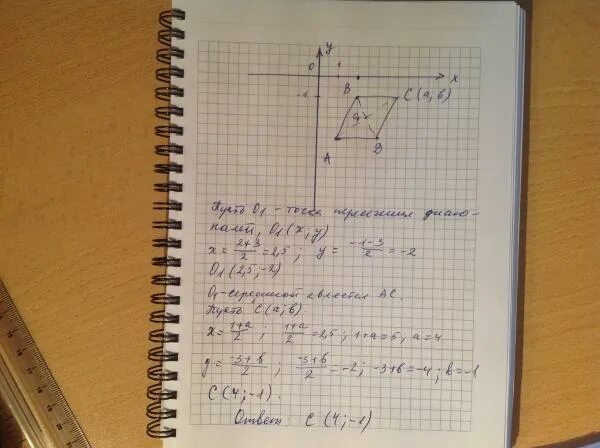 y
0 1 x
-1 B C (a; в)
O₁
A D
Пусть O₁ - точка пересечения диаго-
налей, O₁ (x; y)
x = (2+3)/2 = 2,5 ; y = (-1-3)/2 = -2
O₁ (2,5; -2)
O₁ - серединой является AC.
Пусть C(a; в).
x = (1+a)/2 ; (1+a)/2 = 2,5 ; 1+a = 5, a = 4
y = (-3+в)/2 ; (-3+в)/2 = -2 ; -3+в = -4 ; в = -1
C (4; -1).
Ответ C (4; -1)